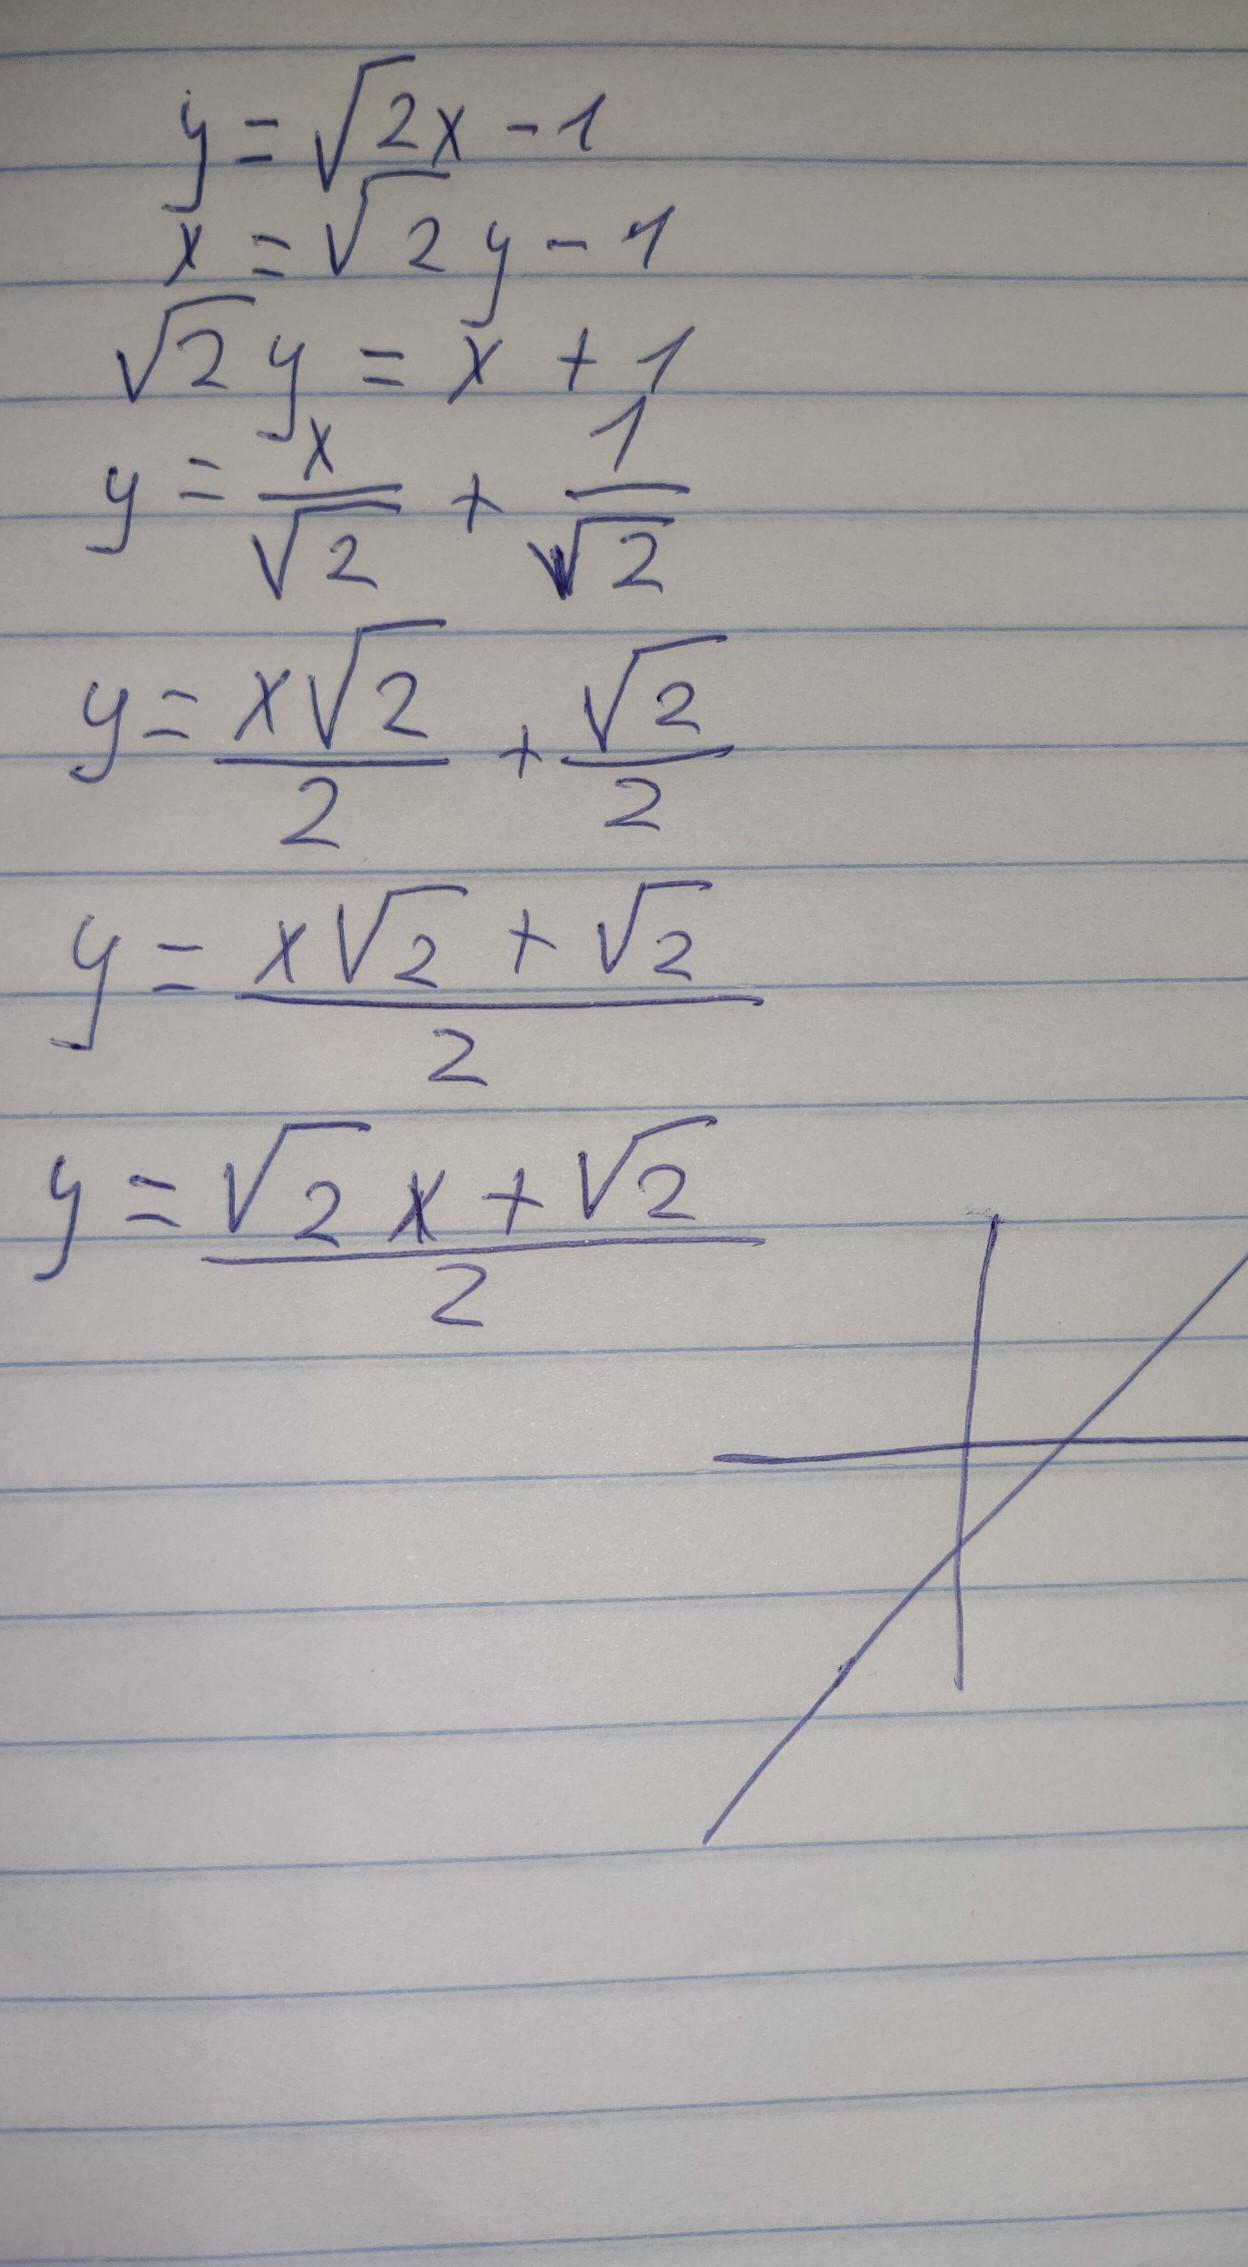 y = √2x - 1
x = √2 y - 1
√2 y = x + 1
y = x/√2 + 1/√2
y = x√2/2 + √2/2
y = (x√2 + √2)/2
y = (√2 x + √2)/2